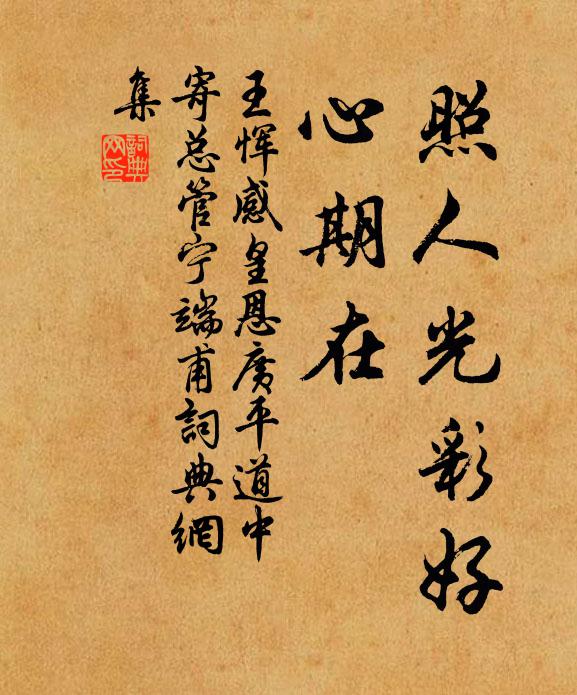 照人光彩好
心期在
王恽感皇恩廣平道中
寄总管宁端甫詞典網
集
詞典
网印